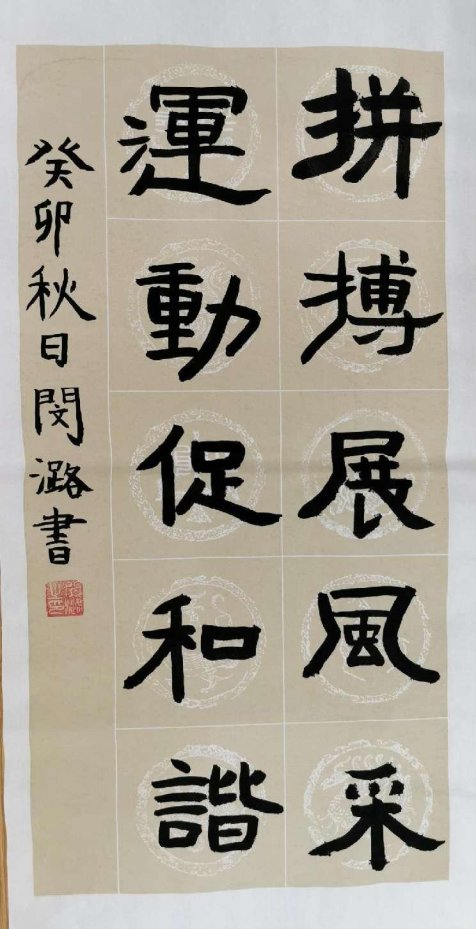 拼搏展風采
運動促和諧
癸卯秋日閔潞書